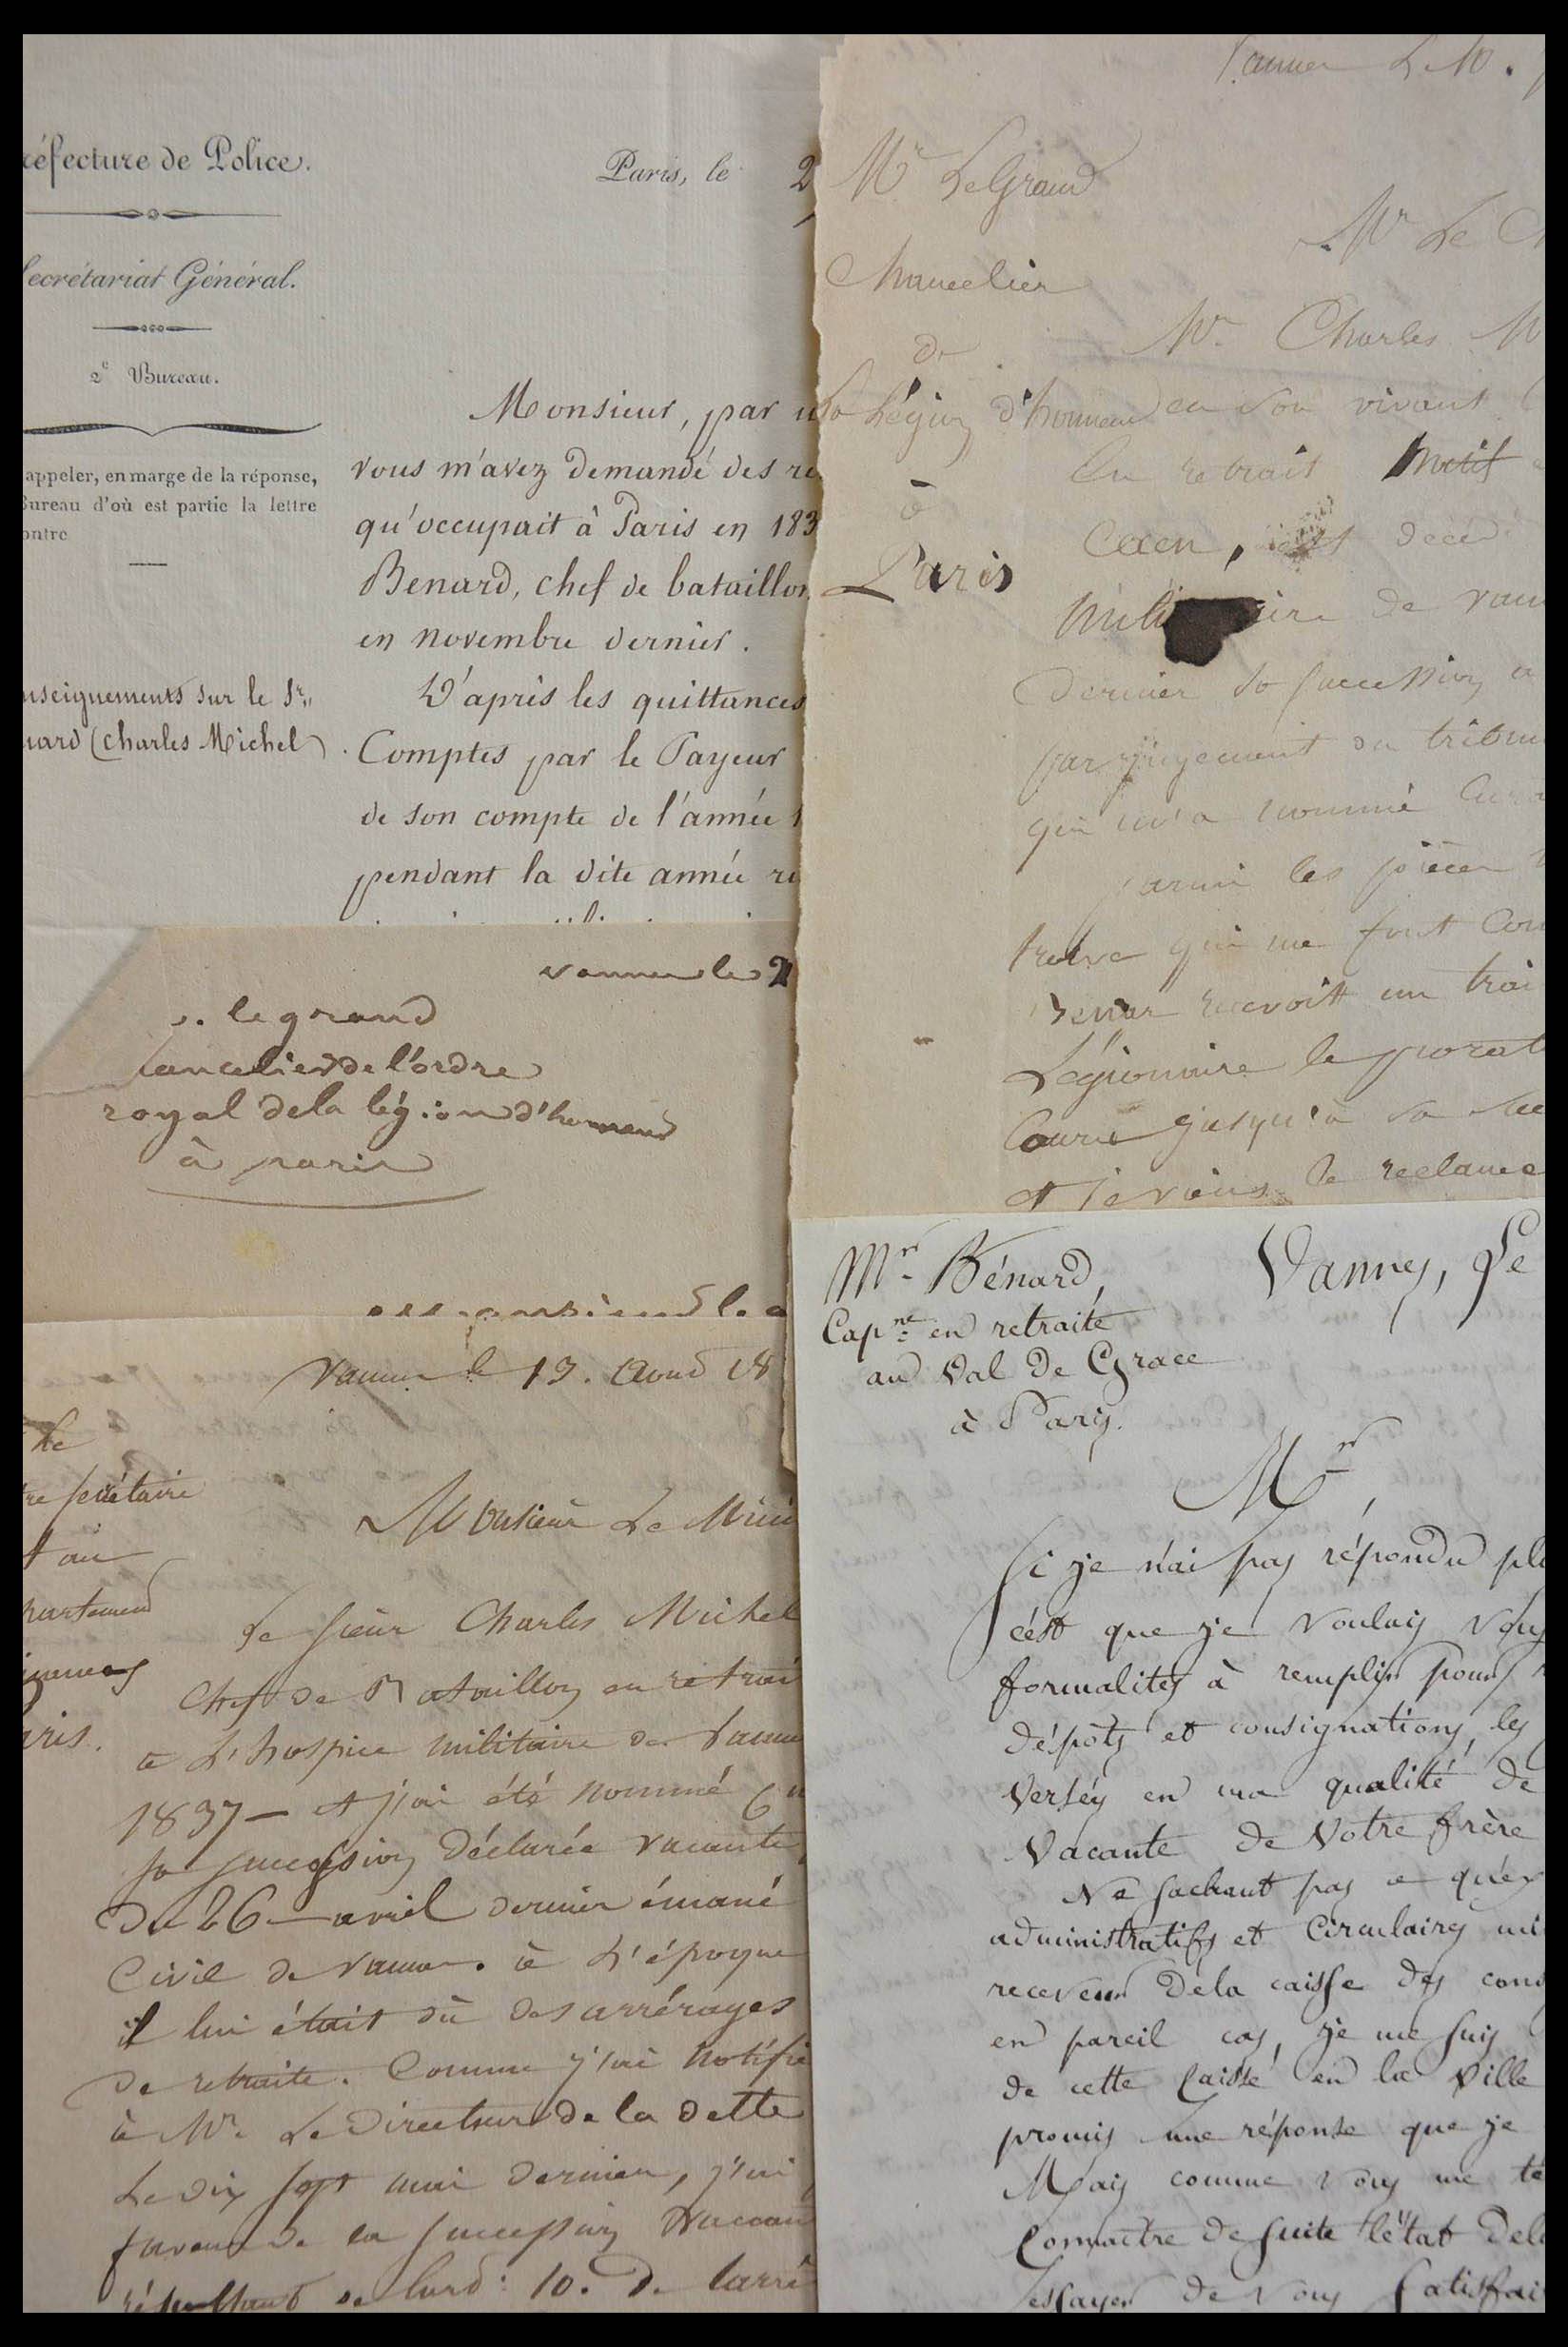 réfecture de Police.
Paris, le 2
Secrétariat Général.
2e Bureau.
appeler, en marge de la réponse,
Bureau d'où est partie la lettre
ontre
nseignements sur le Sr.
nard (Charles Michel)
Monsieur, par u
vous m'avez demandé des re
qu'occupait à Paris en 183
Benard, chef de bataillon
en novembre dernier.
D'après les quittances
Comptes par le Payeur
de son compte de l'année 1
pendant la dite année re
Mr LeGrand
Chancelier
de
la Légion d'honneur
à
Paris
Mr Le C
Mr Charles M
en son vivant
En retrait
Caen, décéd
de vann
dernier sa succession a
par jugement du tribun
qui m'a nommé Cura
parmi les pièces
trouve qui me font Con
Benar recevoit un trai
Légionnaire le prorat
Couru jusqu'à sa
et je viens le reclame
vannes le 2
. le grand
ancelier de l'ordre
royal de la légion d'honneur
à paris
Vannes le 13. Aout 18
Le
re secrétaire
t au
partement
aris.
Monsieur Le Mini
Le sieur Charles Michel
Chef de Bataillon en retrai
a L'hospice militaire de Vanne
1837 - et j'ai été nommé Cu
sa succession Déclarée vacante
du 26 - avril dernier émané
Civil de vannes. à L'époque
il lui était dû des arrérages
de retraite. Comme j'ai notifié
à Mr. Le Directeur de la dette
Le dix sept mai dernier, j'ai
faveur de la succession vaccan
résultant de lard: 10. De larrê
Mr. Bénard,
Capne. en retraite
au Val de Grace
à Paris.
Vannes, Le
Mr,
Si je n'ai pas répondu plu
c'est que je voulais vous
formalités à remplir pour
dépots et consignations, les
versés en ma qualité de
vacante de votre frère
Ne sachant pas ce qu'ex
administratifs et Circulaires mi
receveur de la caisse des cons
en pareil cas, je me suis
de cette Caisse en la ville
promis une réponse que je
Mais comme vous me té
Connaitre de suite l'état dela
essayer de vous satisfai